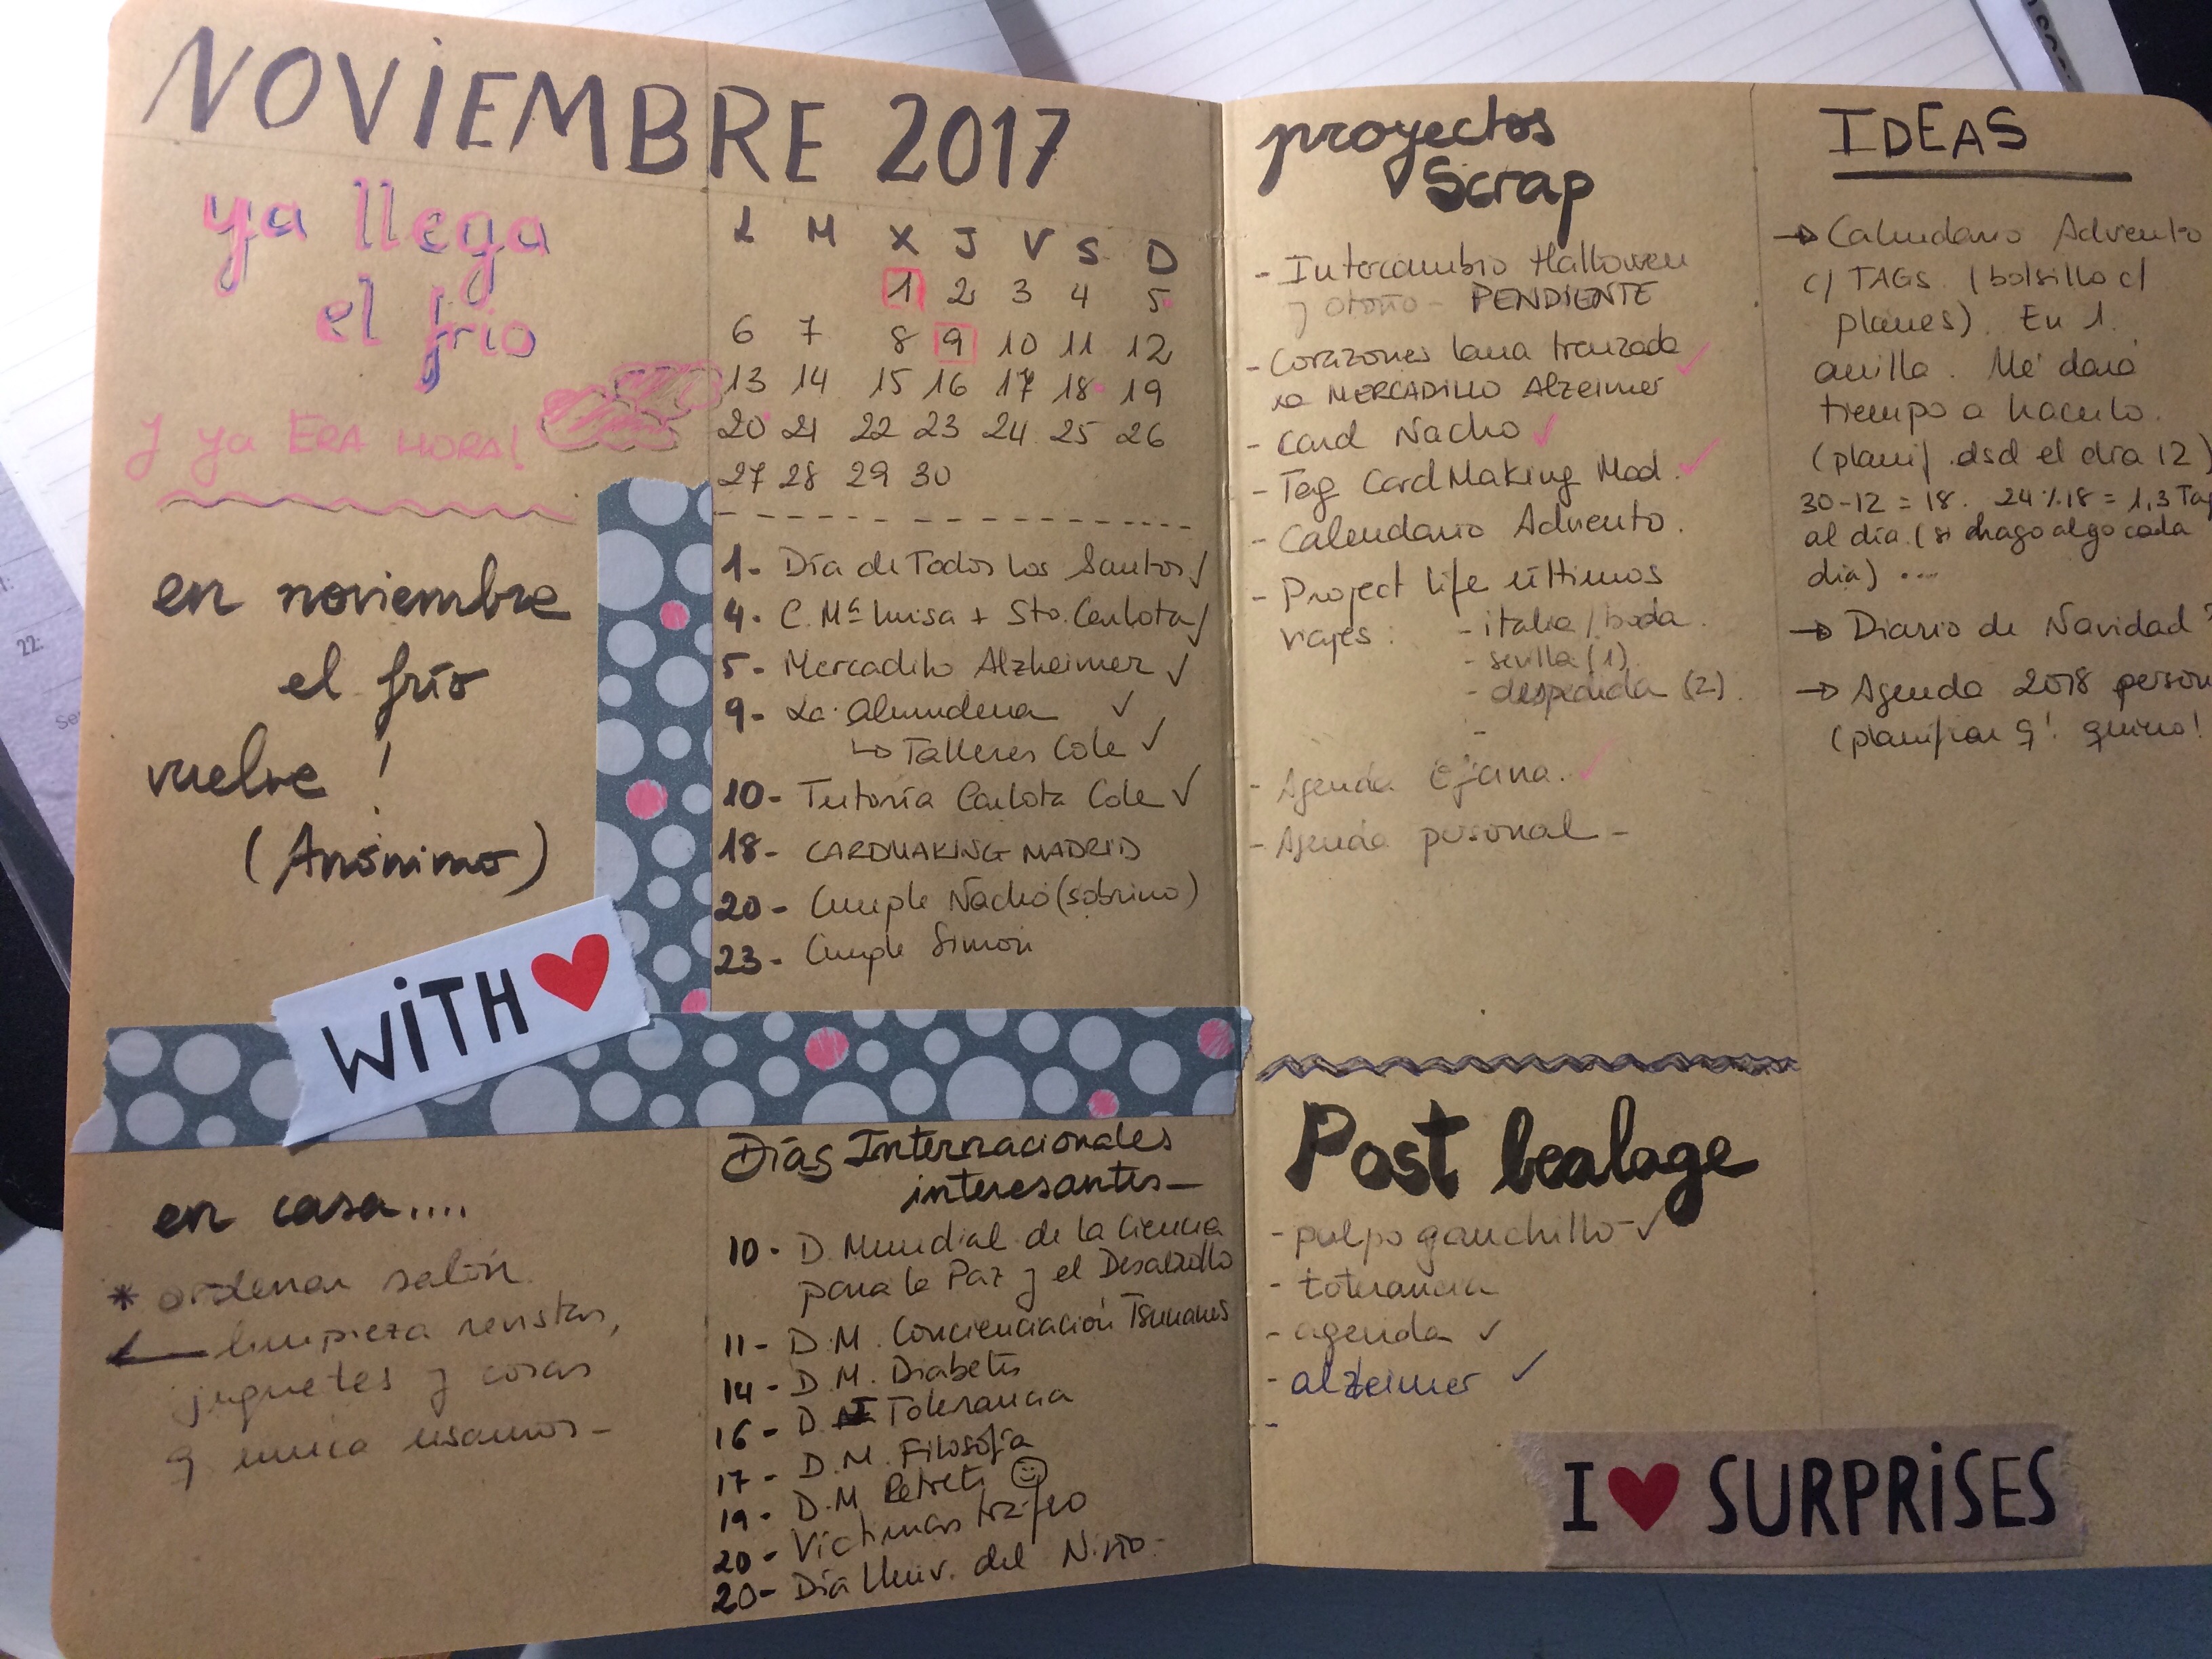 NOVIEMBRE 2017
ya llega
el frío
y ya ERA HORA!
en noviembre
el frío
vuelve !
(Anónimo)
WiTH
en casa....
* ordenar salón
limpieza revistas,
juguetes y cosas
q nunca usamos-
L M X J V S D
1 2 3 4 5
6 7 8 9 10 11 12
13 14 15 16 17 18 19
20 21 22 23 24 25 26
27 28 29 30
1- Día de Todos los Santos ✓
4- C. Mª Luisa + Sto. Carlota ✓
5- Mercadillo Alzheimer ✓
9- La Almudena ✓
↳ Talleres Cole ✓
10- Tutoría Carlota Cole ✓
18- CARDMAKING MADRID
20- Cumple Nacho (sobrino)
23- Cumple Simon
Días Internacionales
interesantes-
10- D. Mundial de la Ciencia
para la Paz y el Desarrollo
11- D.M. Concienciación Tsunamis
14- D.M. Diabetes
16- D. I Tolerancia
17- D.M. Filosofía
19- D.M Retrete ☺
20- Víctimas tráfico
20- Día Univ. del Niño-
proyectos
Scrap
- Intercambio Hallowen
y otoño - PENDIENTE
- Corazones lana trenzada ✓
xa MERCADILLO Alzeimer
- Card Nacho ✓
- Tag CardMaking Mad. ✓
- Calendario Adviento.
- Project life últimos
viajes: - italia/boda.
- sevilla (1)
- despedida (2).
-
- Agenda Oficina. ✓
- Agenda personal -
Post bealage
- pulpo ganchillo - ✓
- tolerancia
- agenda ✓
- alzeimer ✓
-
I SURPRiSES
IDEAS
→ Calendario Adviento
c/ TAGS (bolsillo c/
planes). En 1.
anilla. Me dará
tiempo a hacerlo.
(planif. dsd el día 12)
30-12 = 18. 24%18 = 1,3 Tag
al día. (si hago algo cada
día) ....
→ Diario de Navidad ?
→ Agenda 2018 person
(planificar q! quiero!